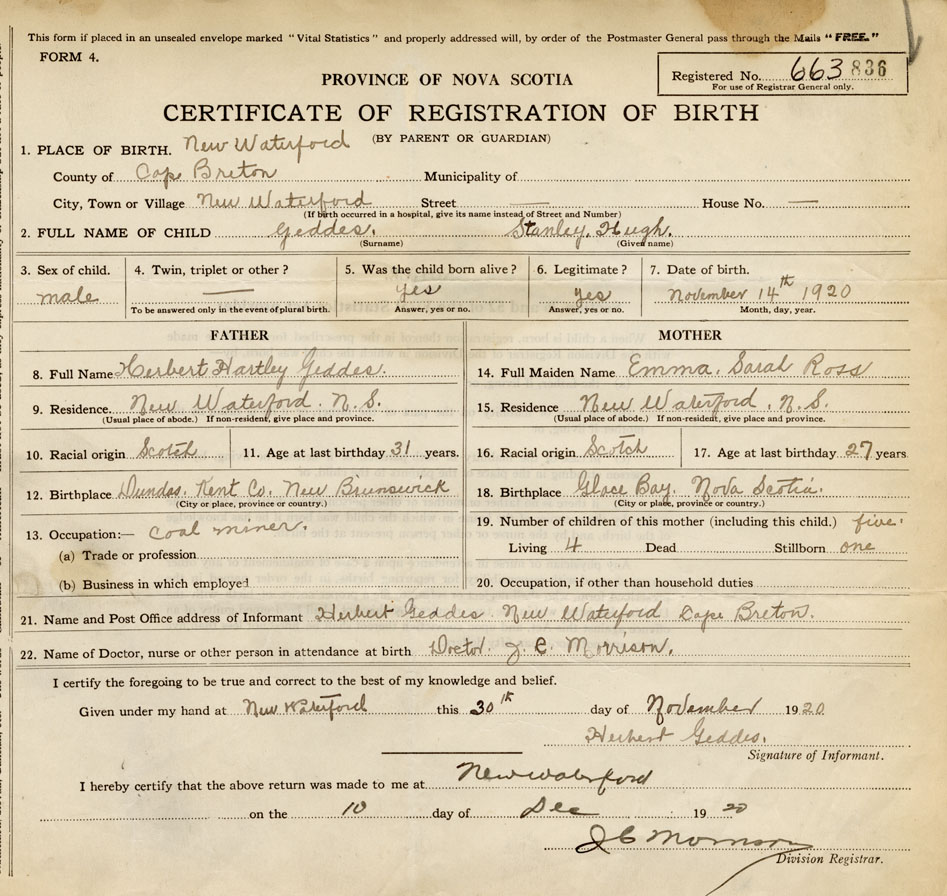 This form if placed in an unsealed envelope marked "Vital Statistics" and properly addressed will, by order of the Postmaster General pass through the Mails "FREE."
FORM 4.
Registered No. 663 836
For use of Registrar General only.
PROVINCE OF NOVA SCOTIA
CERTIFICATE OF REGISTRATION OF BIRTH
(BY PARENT OR GUARDIAN)
1. PLACE OF BIRTH. New Waterford
County of Cape Breton Municipality of
City, Town or Village New Waterford Street — House No. —
(If birth occurred in a hospital, give its name instead of Street and Number)
2. FULL NAME OF CHILD Geddes. Stanley. Hugh.
(Surname) (Given name)
3. Sex of child. 4. Twin, triplet or other? 5. Was the child born alive? 6. Legitimate? 7. Date of birth.
male — yes yes November 14th 1920
To be answered only in the event of plural birth. Answer, yes or no. Answer, yes or no. Month, day, year.
FATHER MOTHER
8. Full Name Herbert Hartley Geddes. 14. Full Maiden Name Emma. Sarah Ross
9. Residence. New Waterford. N.S. 15. Residence New Waterford. N.S.
(Usual place of abode.) If non-resident, give place and province. (Usual place of abode.) If non-resident, give place and province.
10. Racial origin Scotch 11. Age at last birthday 31 years. 16. Racial origin Scotch 17. Age at last birthday 27 years
12. Birthplace Dundas. Kent Co. New Brunswick 18. Birthplace Glace Bay. Nova Scotia.
(City or place, province or country.) (City or place, province or country.)
13. Occupation:— Coal miner. 19. Number of children of this mother (including this child.) five.
(a) Trade or profession Living 4 Dead Stillborn one
(b) Business in which employed 20. Occupation, if other than household duties
21. Name and Post Office address of Informant Herbert Geddes. New Waterford Cape Breton.
22. Name of Doctor, nurse or other person in attendance at birth Doctor. J. C. Morrison.
I certify the foregoing to be true and correct to the best of my knowledge and belief.
Given under my hand at New Waterford this 30th day of November 1920
Herbert Geddes.
Signature of Informant.
I hereby certify that the above return was made to me at New Waterford
on the 10 day of Dec 1920
J C Morrison
Division Registrar.